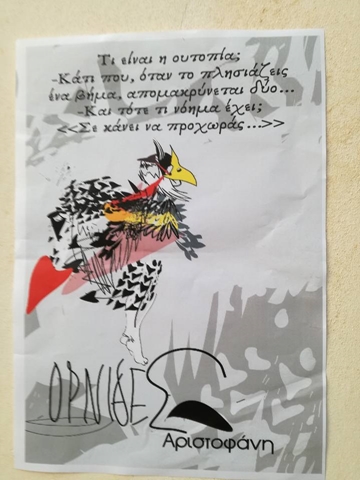 Τι είναι η ουτοπία;
-Κάτι που, όταν το πλησιάζεις
ένα βήμα, απομακρύνεται δύο...
-Και τότε τι νόημα έχει;
<<Σε κάνει να προχωράς...>>
ΟΡΝΙΘΕΣ
Αριστοφάνη